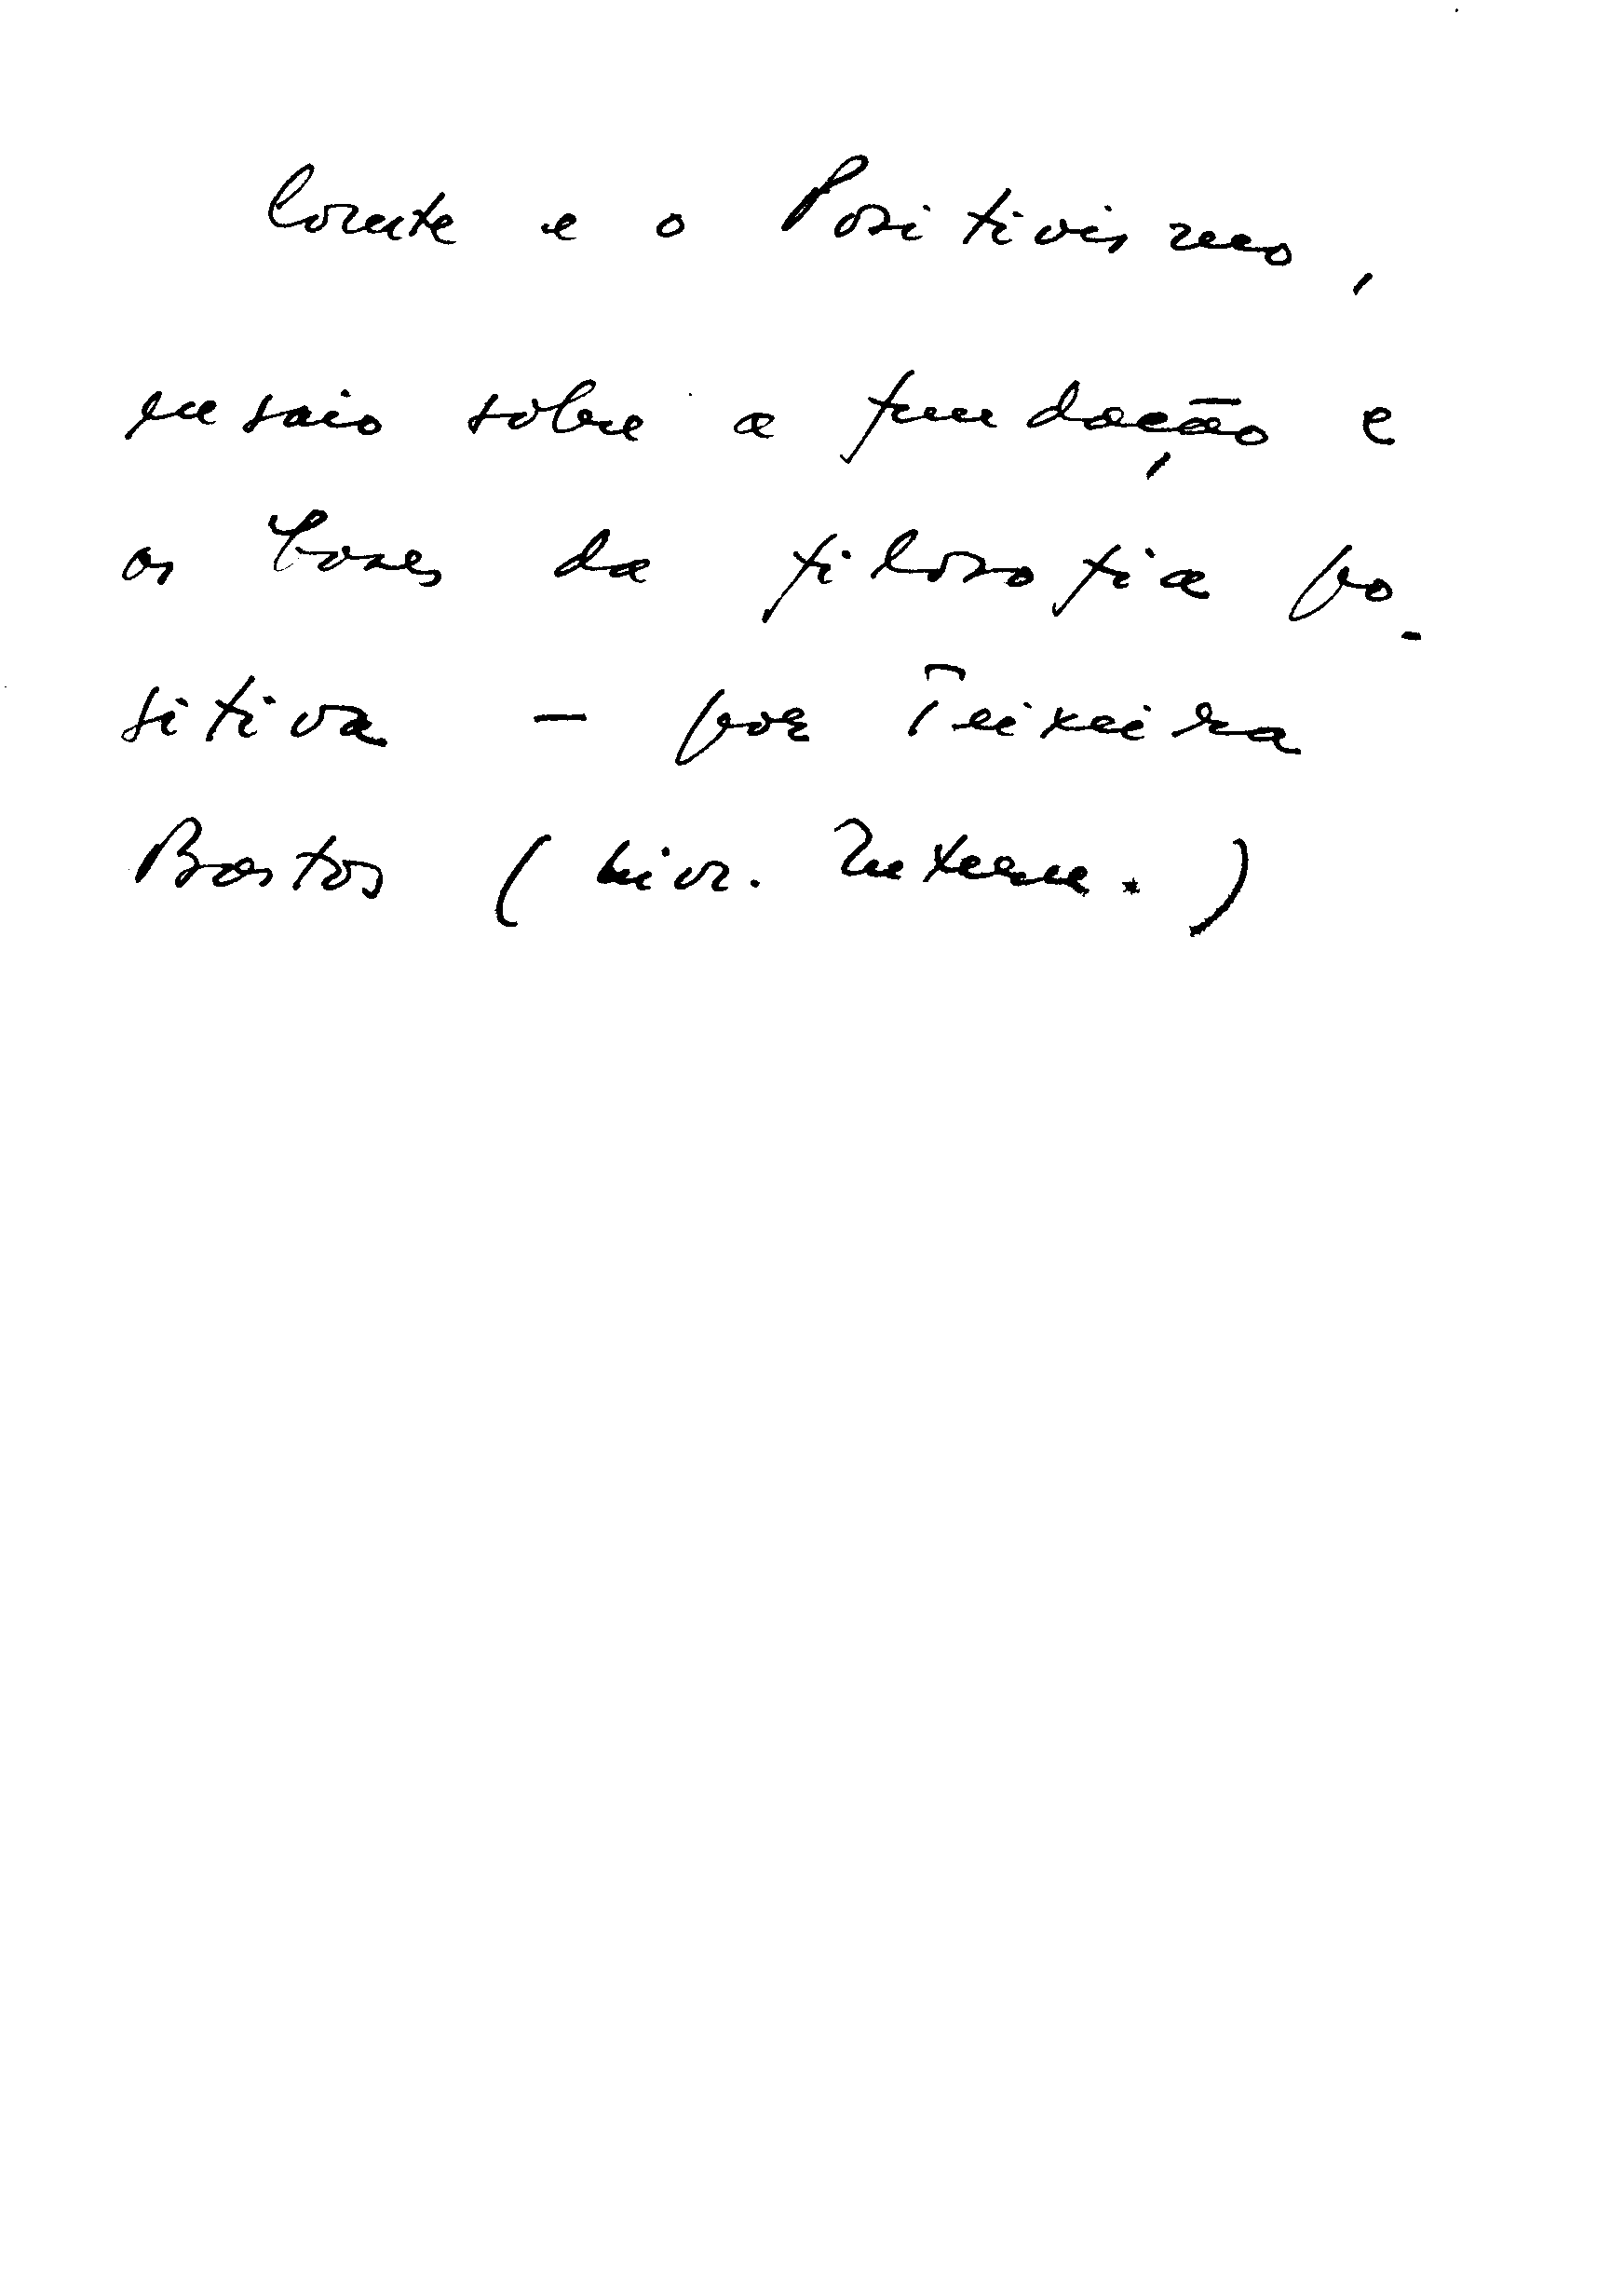 Comte e o Positivismo,
ensaio sobre a fundação e
as bases da filosofia po-
sitiva — por Teixeira
Bastos (Livr. Intern.)